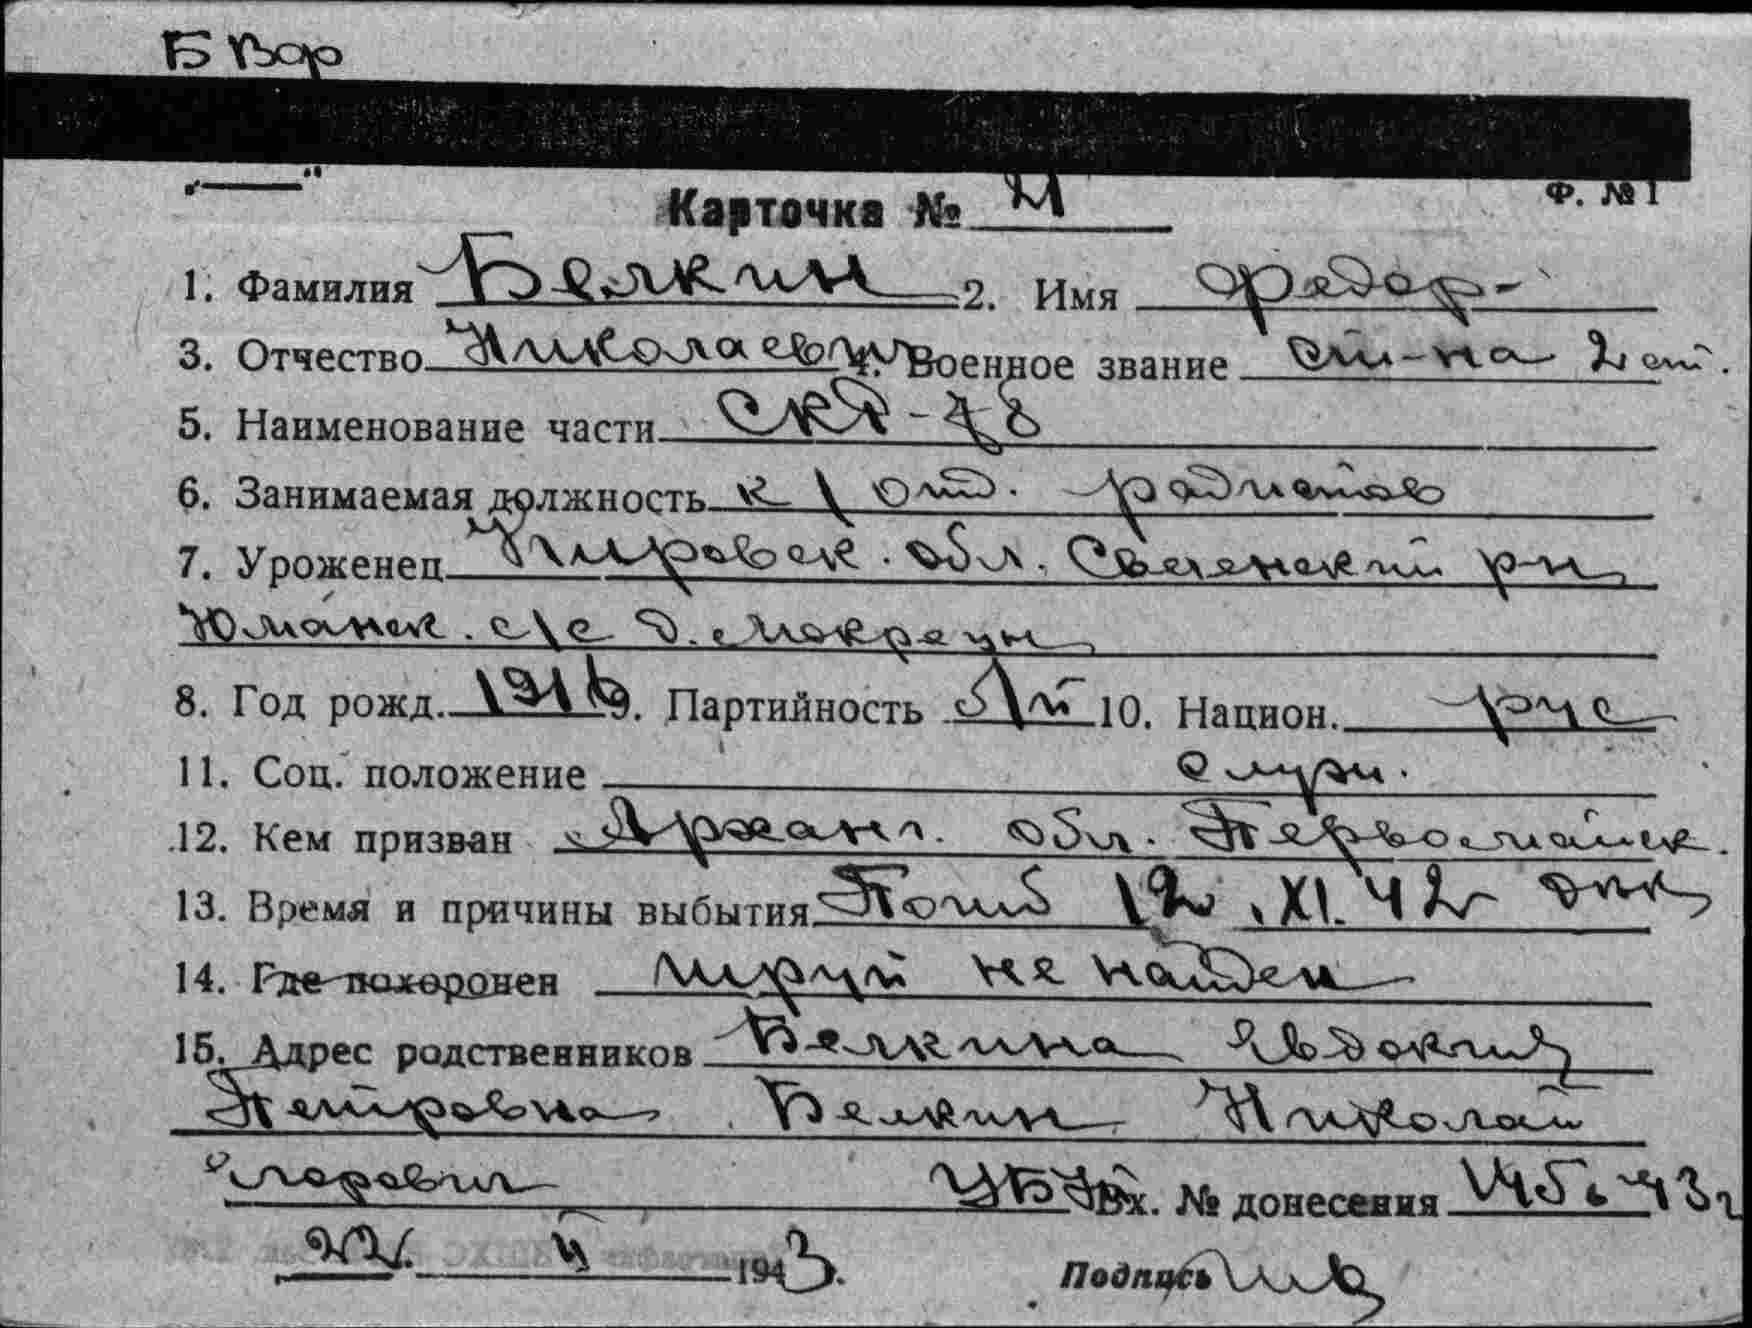 Ф. № 1
Карточка №
1. Фамилия Белкин 2. Имя Федор
3. Отчество Николаевич 4. Военное звание ст-на 2 ст.
5. Наименование части СКР-78
6. Занимаемая должность к\отд. радистов
7. Уроженец Кировск. обл. Свеченский р-н
Юманск. с\с д. Мокрецы
8. Год рожд. 1916 9. Партийность 10. Национ. рус
11. Соц. положение служ.
12. Кем призван Арханг. обл. Первомайск.
13. Время и причины выбытия Погиб 12.XI.42г
14. Где похоронен труп не найден
15. Адрес родственников Белкина Евдокия
Петровна Белкин Николай
Вх. № донесения 43г
22. 1943.
Подпись